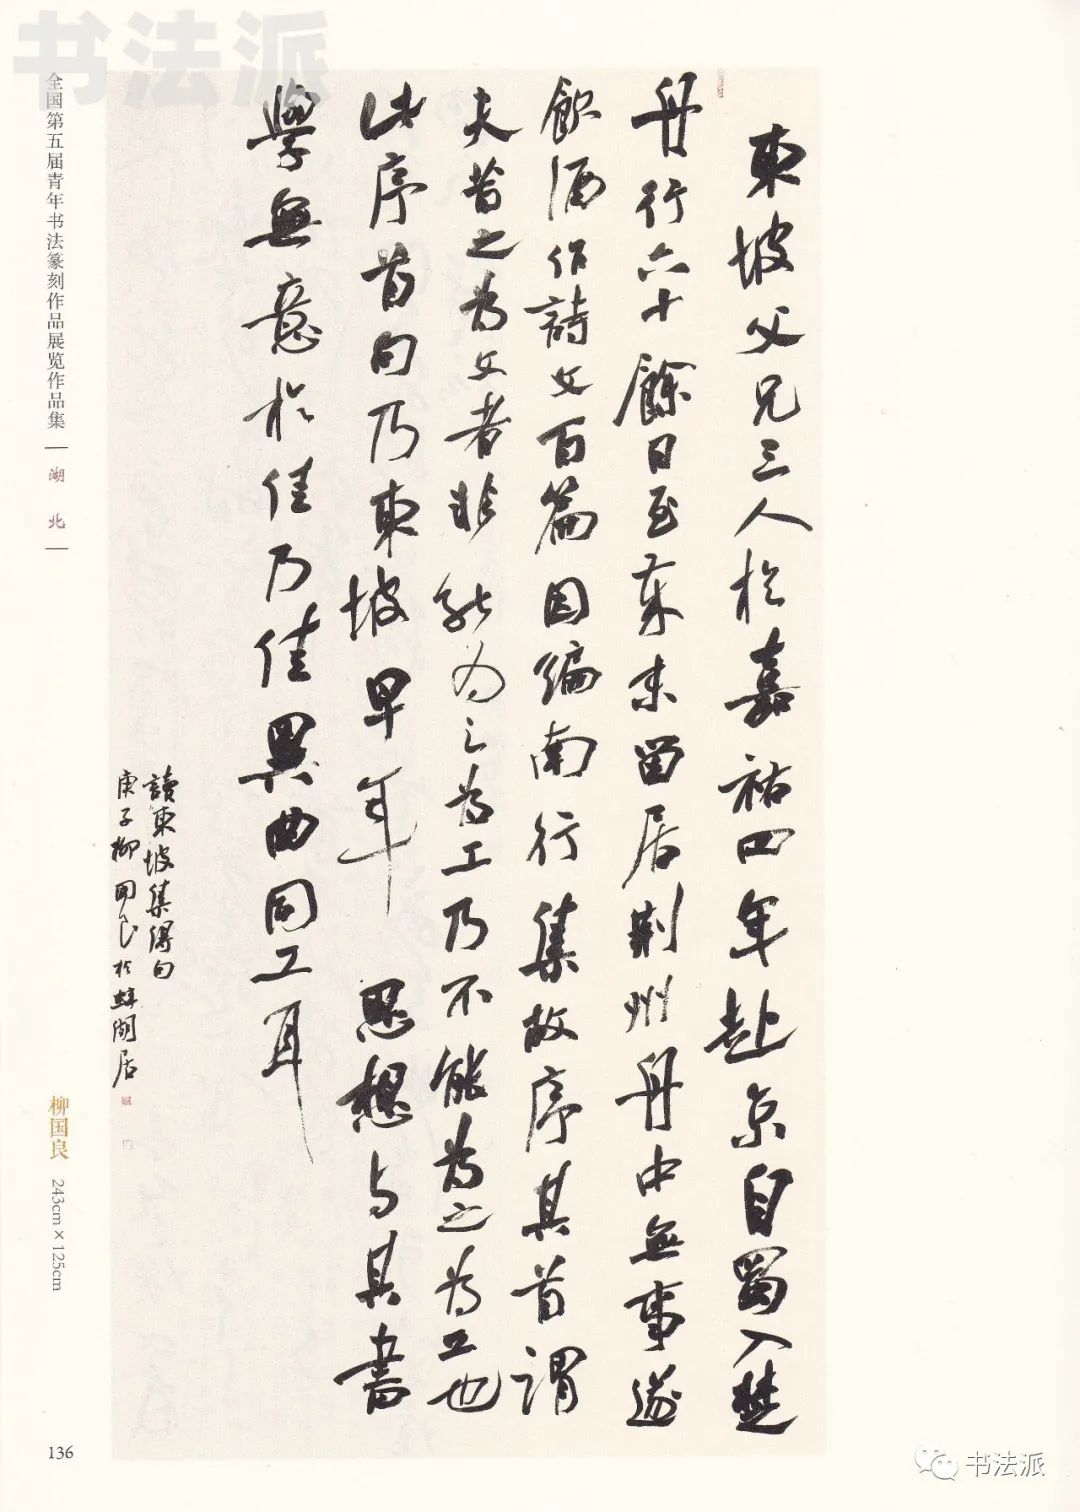 東坡父兄三人於嘉祐四年赴京自蜀入楚
舟行六十餘日至荊州留居荊州舟中無事遂
飲酒作詩文百篇因編南行集故序其首謂
夫昔之為文者非能為之為工乃不能不為之為工也
此序首句乃東坡早年思想与其書
學無意於佳乃佳異曲同工耳
讀東坡集得句
庚子柳国良於蟀湖居
书法派
全国第五届青年书法篆刻作品展览作品集
湖北
柳国良
243cm×125cm
136
书法派